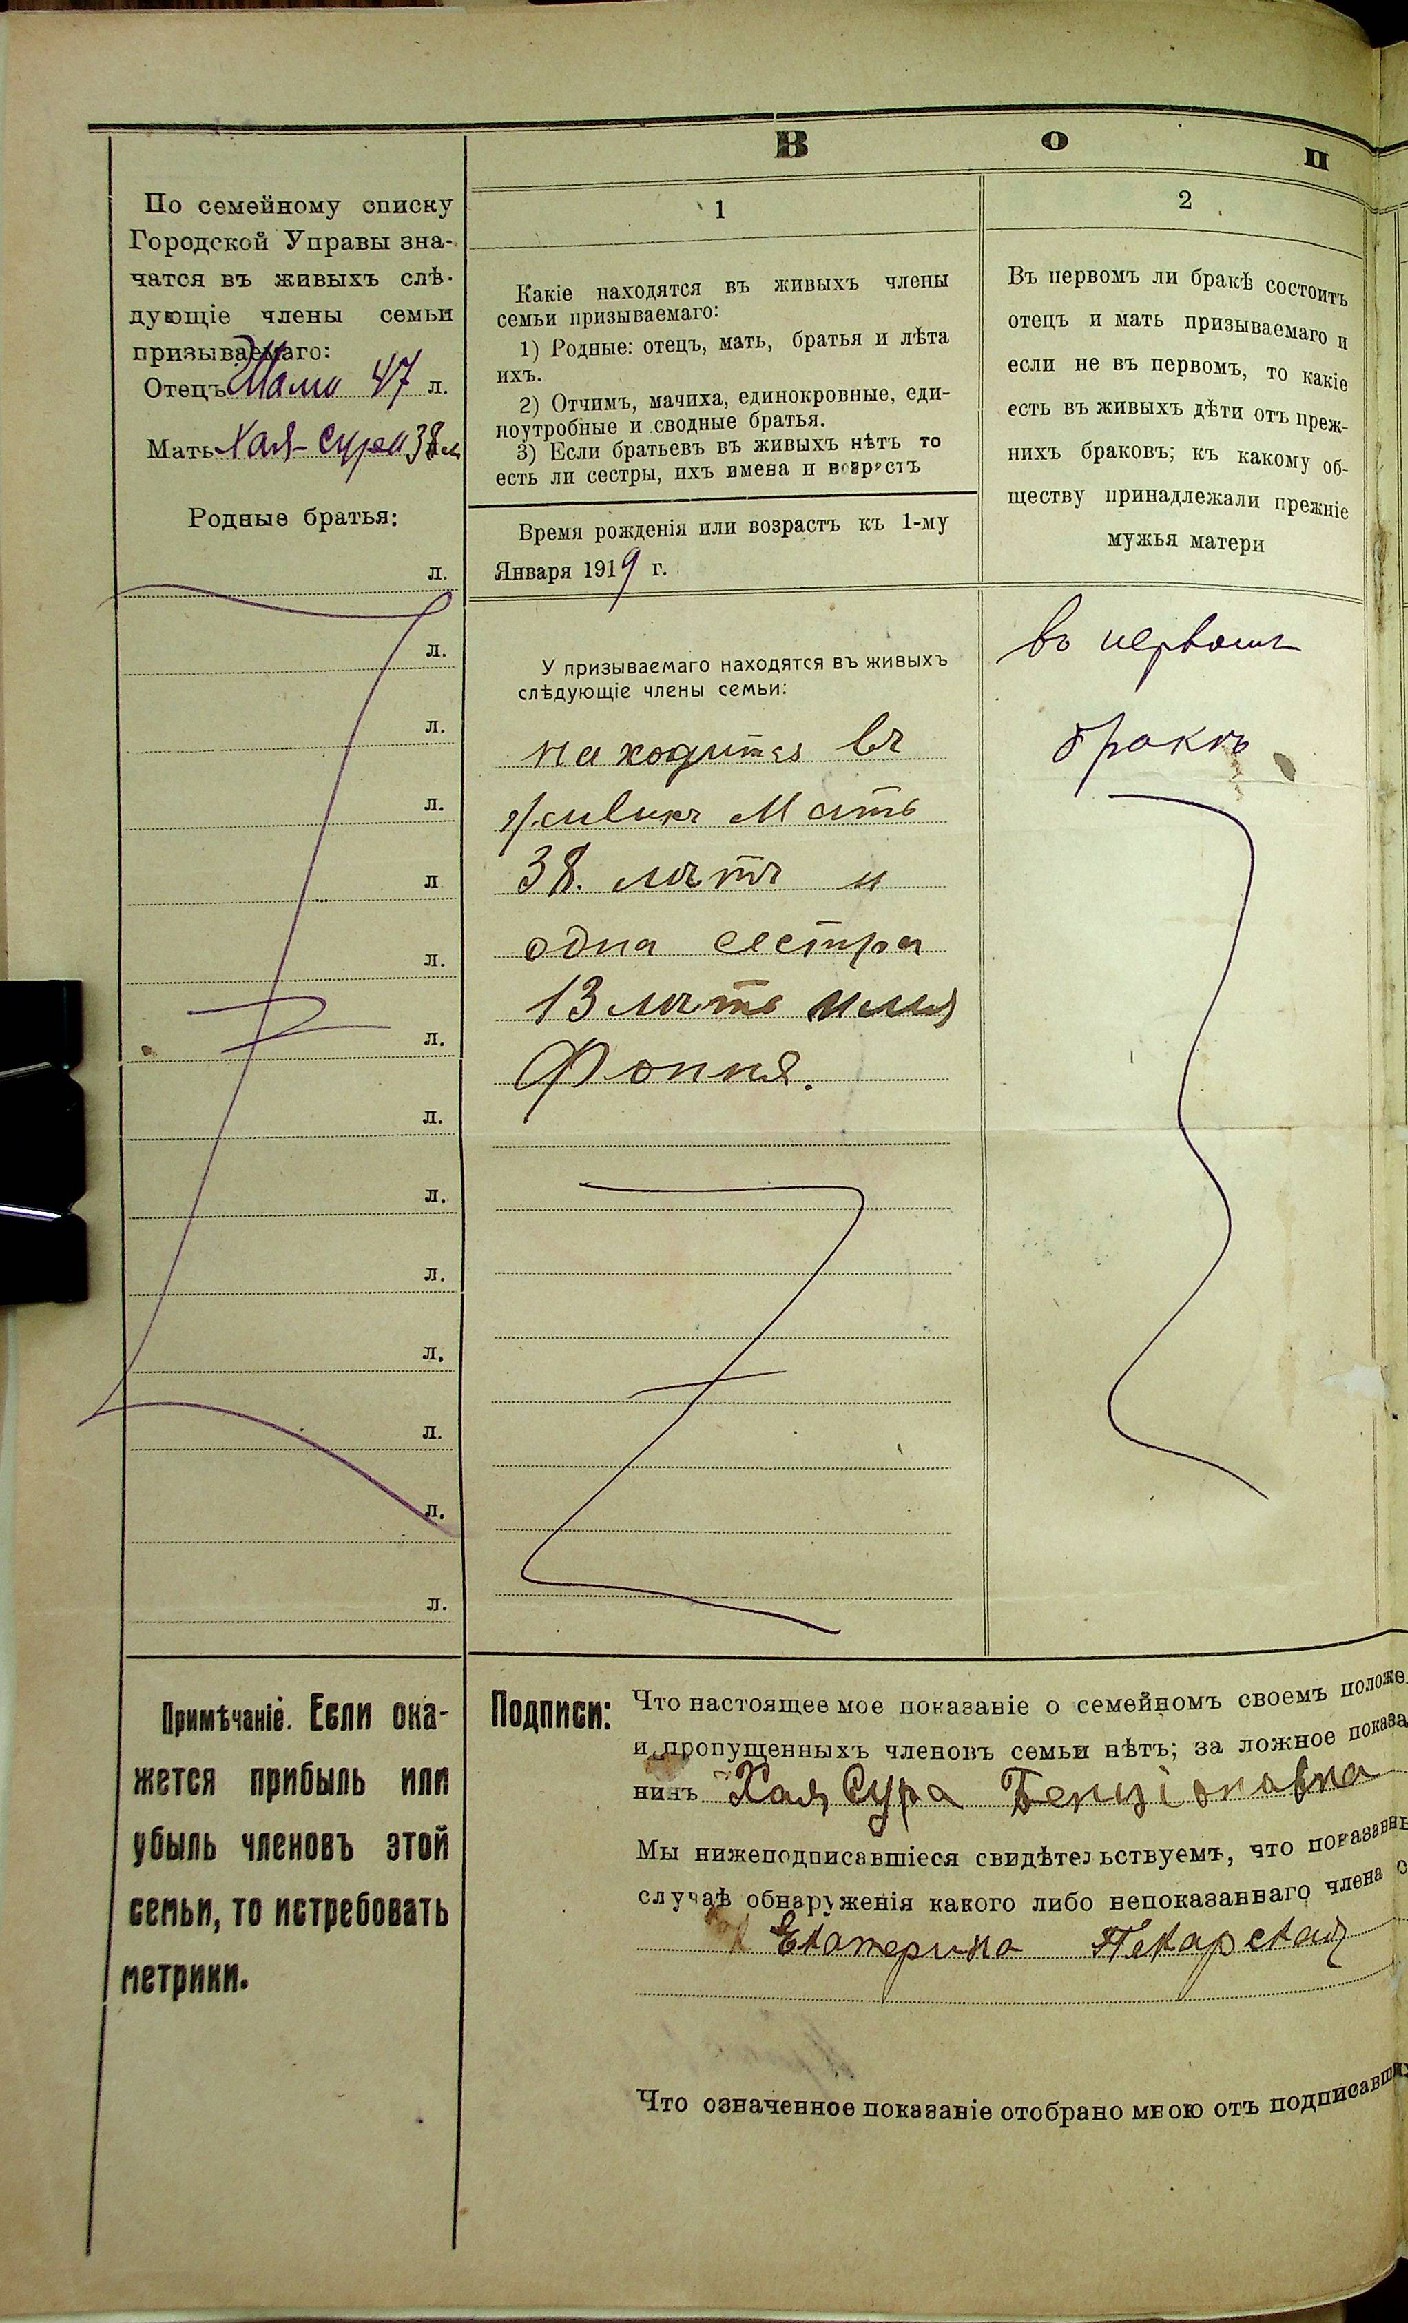 В о п
По семейному списку
Городской Управы зна-
чатся въ живыхъ слѣ-
дующіе члены семьи
призываемаго:
Отецъ 47 л.
Мать Хая-Сура 38 л
Родные братья:
л.
л.
л.
л.
л
л.
л.
л.
л.
л.
л.
л.
л.
л.
Примѣчаніе. Если ока-
жется прибыль или
убыль членовъ этой
семьи, то истребовать
метрики.
1
Какіе находятся въ живыхъ члены
семьи призываемаго:
1) Родные: отецъ, мать, братья и лѣта
ихъ.
2) Отчимъ, мачиха, единокровные, еди-
ноутробные и сводные братья.
3) Если братьевъ въ живыхъ нѣтъ то
есть ли сестры, ихъ имена и возрастъ
Время рожденія или возрастъ къ 1-му
Января 1919 г.
У призываемаго находятся въ живыхъ
слѣдующіе члены семьи:
находится въ
живыхъ Мать
38. лѣтъ и
одна сестра
13 лѣтъ имя
Фоння.
2
Въ первомъ ли бракѣ состоитъ
отецъ и мать призываемаго и
если не въ первомъ, то какіе
есть въ живыхъ дѣти отъ преж-
нихъ браковъ; къ какому об-
ществу принадлежали прежніе
мужья матери
въ первомъ
бракѣ
Подписи: Что настоящее мое показаніе о семейномъ своемъ положе
и пропущенныхъ членовъ семьи нѣтъ; за ложное показа
нинъ Хая Сура Бенціоновна
Мы нижеподписавшіеся свидѣтельствуемъ, что показанны
случаѣ обнаруженія какого либо непоказаннаго члена с
Екатерина Пекарская
Что означенное показаніе отобрано мною отъ подписавших